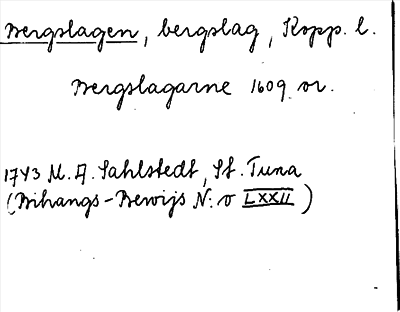 Bergslagen, bergslag, Kopp. l.
Bergslagarne 1609 or.
1743 M. A. Sahlstedt, St. Tuna
(Bihangs-Bewijs N:o LXXII)